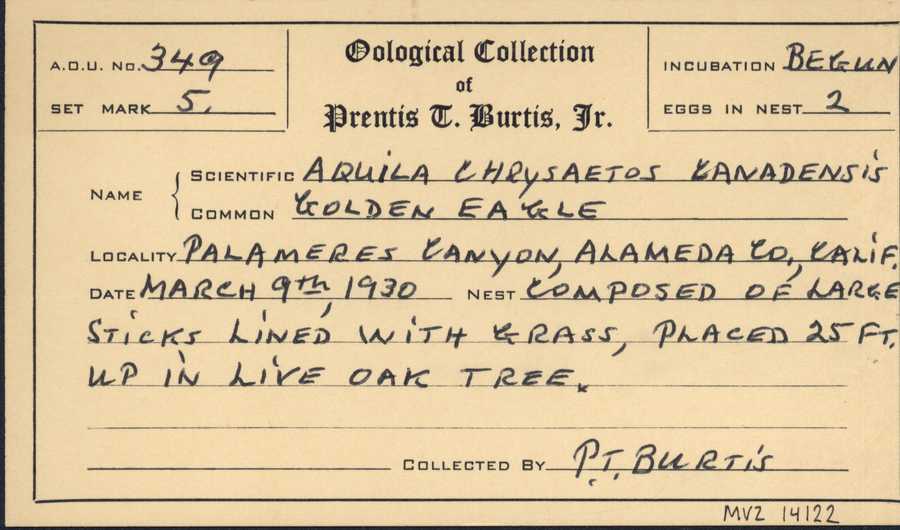 A.O.U. No. 349
Oological Collection
of
Prentis T. Burtis, Jr.
INCUBATION BEGUN
SET MARK 5.
EGGS IN NEST 2
NAME
SCIENTIFIC AQUILA CHRYSAETOS CANADENSIS
COMMON GOLDEN EAGLE
LOCALITY PALAMERES CANYON, ALAMEDA CO., CALIF.
DATE MARCH 9th, 1930 NEST COMPOSED OF LARGE
STICKS LINED WITH GRASS, PLACED 25 FT.
UP IN LIVE OAK TREE.
COLLECTED BY P.T. BURTIS
MVZ 14122